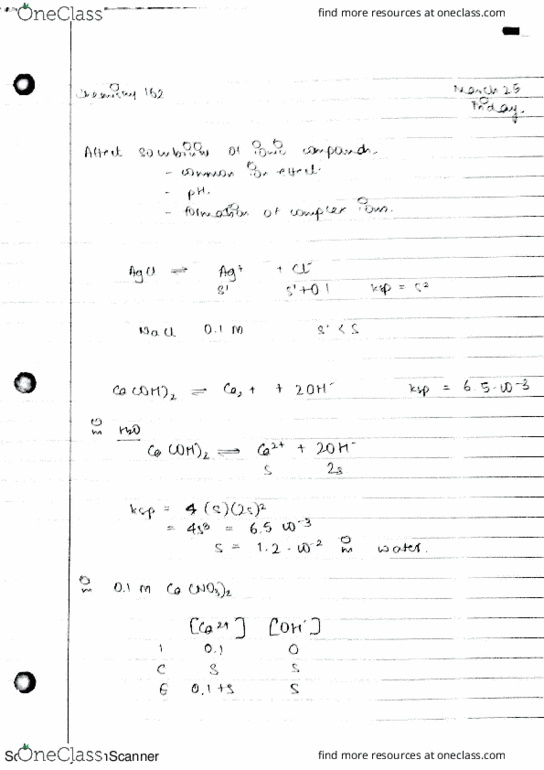 OneClass find more resources at oneclass.com
Chemistry 152 March 25
Friday.
Affect solubility of ionic compounds.
- common ion effect.
- pH.
- formation of complex ions.
AgCl ⇌ Ag+ + Cl-
s' s'+0.1 ksp = s²
NaCl 0.1 M s' < s
Ca(OH)₂ ⇌ Ca₂+ + 2OH- ksp = 6.5·10-3
in H₂O
Ca(OH)₂ ⇌ Ca2+ + 2OH-
s 2s
ksp = 4(s)(2s)²
= 4s³ = 6.5 10-3
s = 1.2·10-2 in water.
in 0.1 M Ca(NO₃)₂
[Ca2+] [OH-]
I 0.1 0
C s s
E 0.1+s s
OneClass Scanner find more resources at oneclass.com